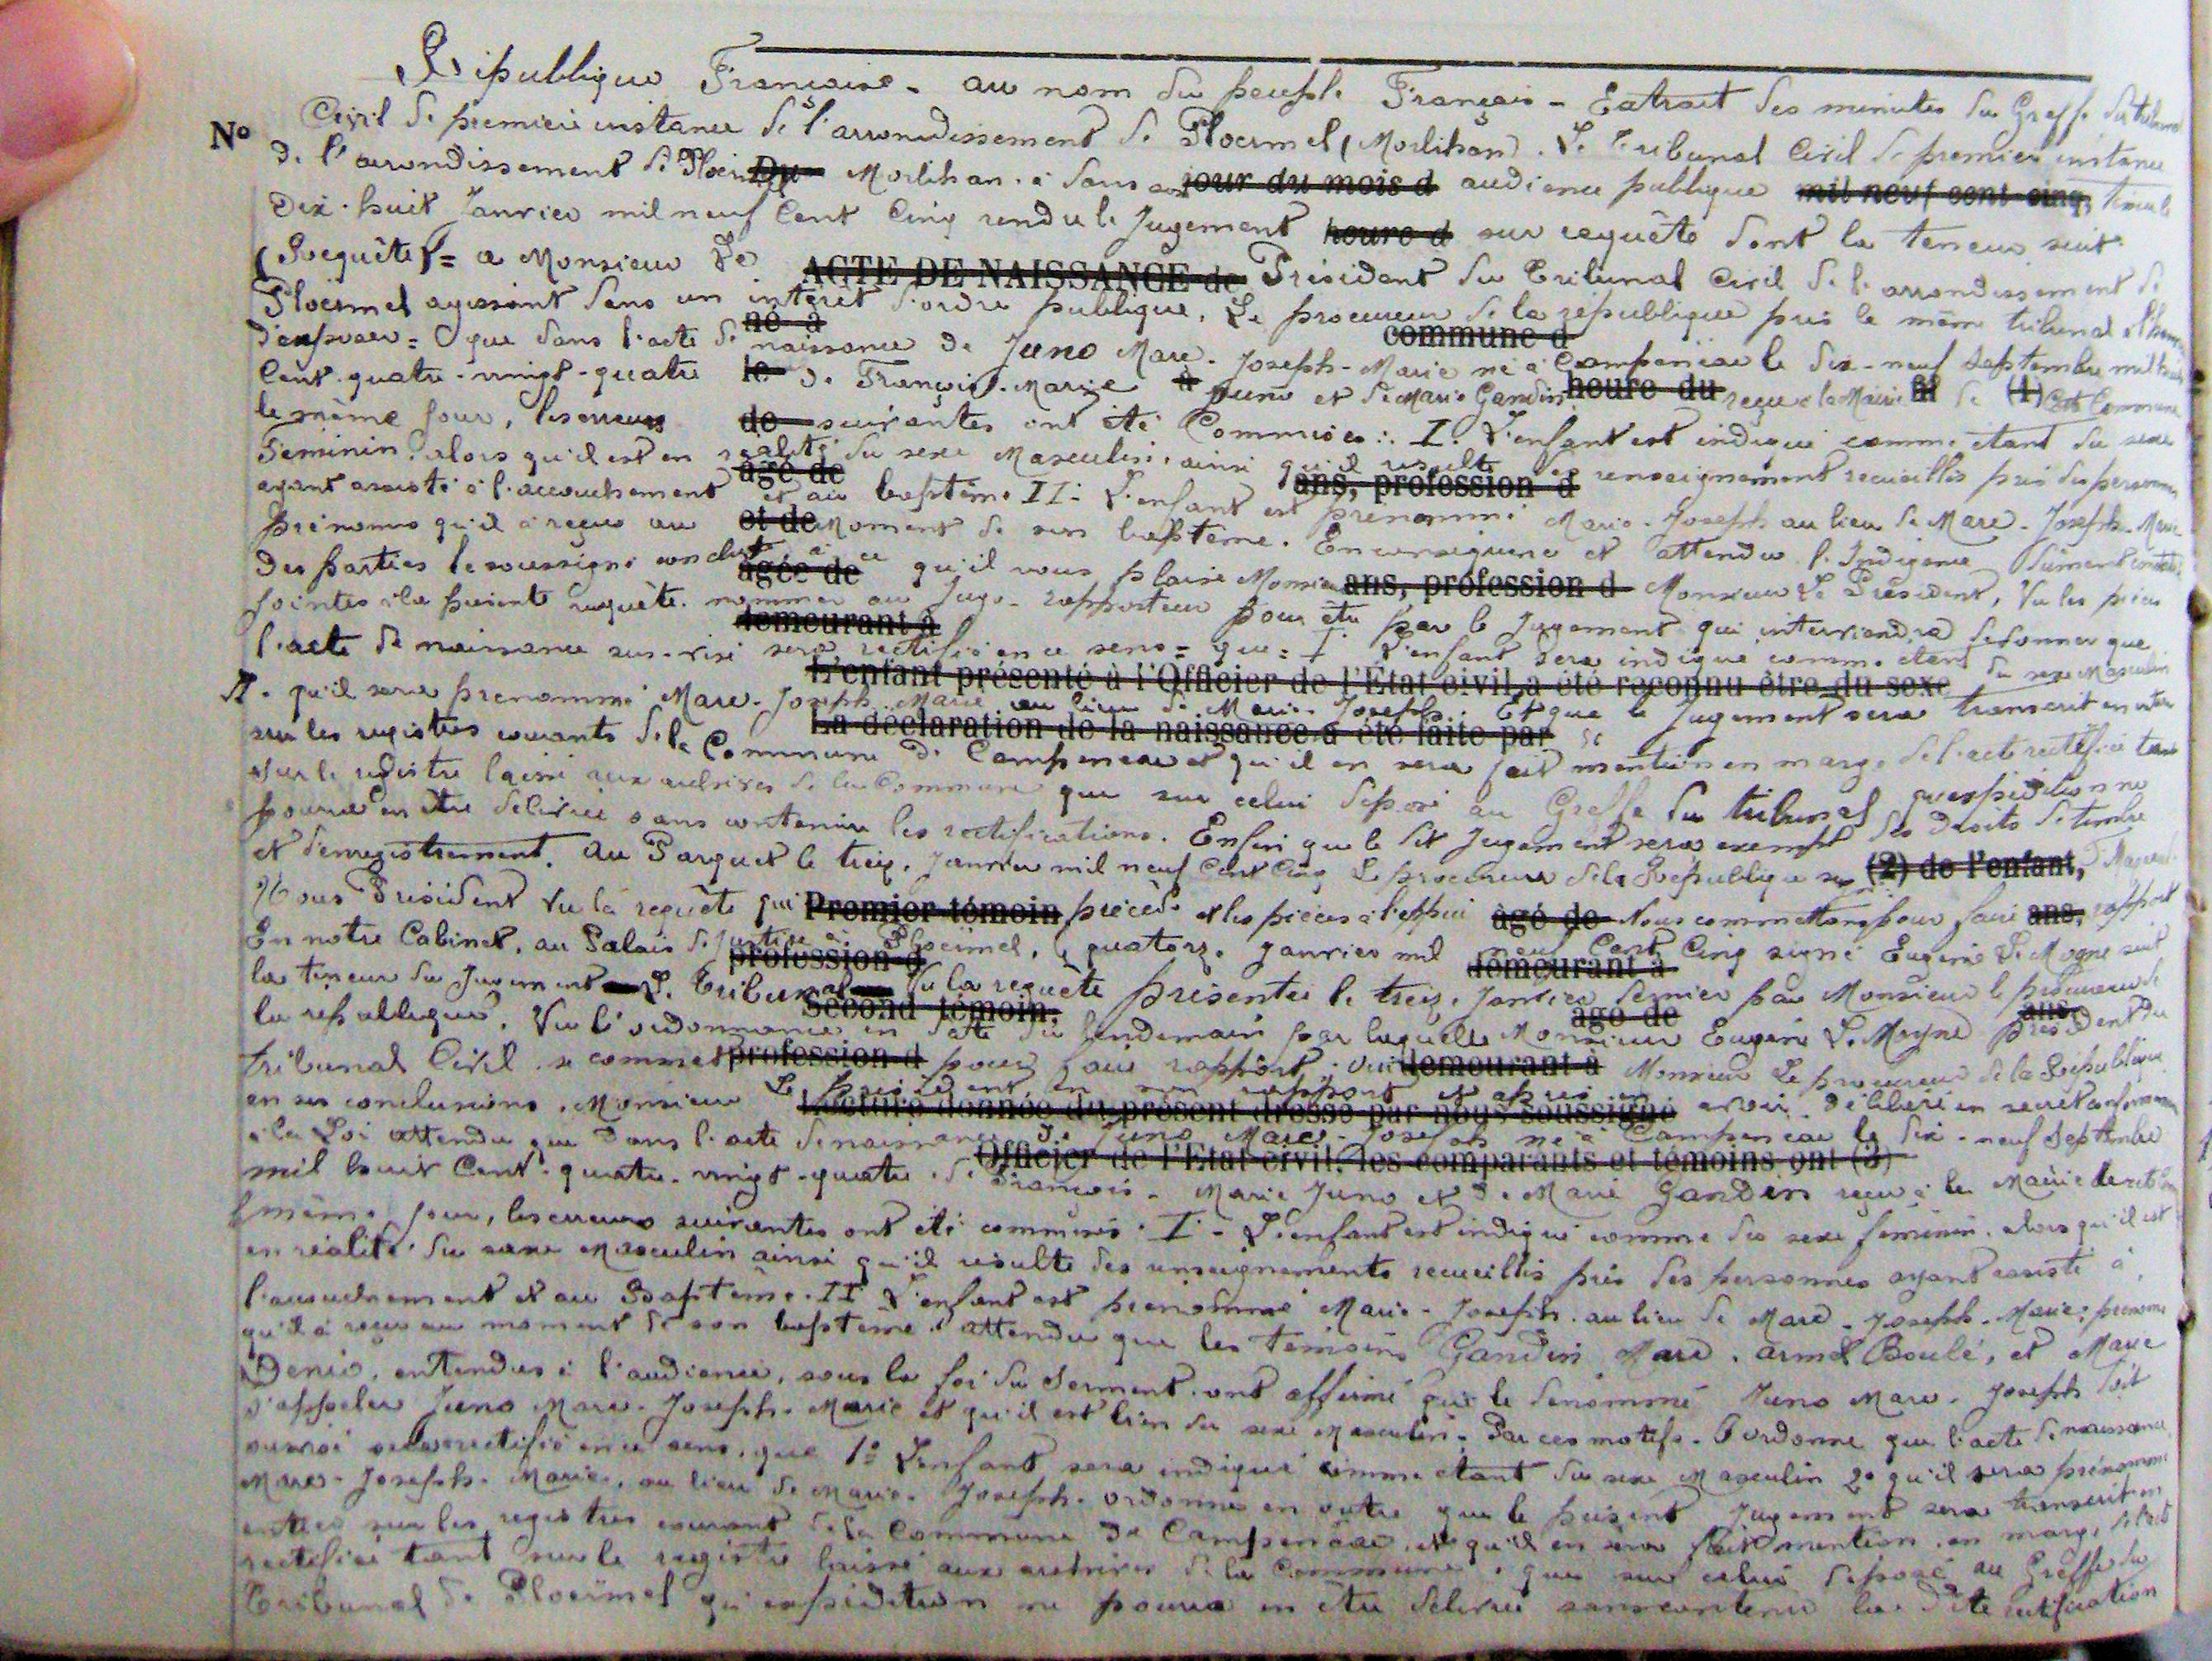 République Française - au nom du peuple Français - Extrait des minutes du Greffe du tribunal
Nº
Civil de premiere instance de l'arrondissement de Ploermel (Morbihan). Le Tribunal Civil de premier instance
de l'arrondissement de Ploermel Du Morbihan. a dans son jour du mois d audience publique mil neuf cent cinq,
Dix-huit Janvier mil neuf Cent Cinq rendu le Jugement heure d sur requête dont la teneur suit
(Requête) = a Monsieur Le ACTE DE NAISSANCE de Président du Tribunal Civil de l'arrondissement de
Ploërmel agissant dans un intérêt d'ordre publique, Le procureur de la république près le même tribunal a l'honneur
né à commune d
d'exposer = que dans l'acte de naissance de Juno Marc-Joseph-Marie né à Campeneac le dix-neuf Septembre mil huit
Cent-quatre-vingt-quatre le de François-Marie à Juno et de Marie Gandin heure du reçu à la Mairie de (1) cette Commune
le même jour, les erreurs de suivantes ont été Commises : I. L'enfant est indiqué comme étant du sexe
Feminin alors qu'il est en réalité du sexe Masculin, ainsi qu'il resulte des renseignement recueillis près des personnes
âgé de ans, profession d
ayant assisté à l'accouchement et au baptême II- L'enfant est prénommé Marie-Joseph au lieu de Marc-Joseph-Marie
prénoms qu'il a reçus au et de Moment de son baptême. En conséquence et attendu l'Indigence dûment constatée
des parties le soussigné conclut à ce qu'il vous plaise Monsieur ans, profession d Monsieur Le Président, Vu les pièces
âgée de
jointes à la présente requête. nommer un Juge-rapporteur pour être par le Jugement qui interviendra ordonner que
demeurant à
l'acte de naissance sus-visé sera rectifié en ce sens = que = I L'enfant sera indiqué comme étant du sexe Masculin
L'enfant présenté à l'Officier de l'État civil a été reconnu être du sexe
II. qu'il sera prénommé Marc-Joseph-Marie au lieu de Marie-Joseph. Et que le Jugement sera transcrit en entier
La déclaration de la naissance a été faite par
sur les registres courants de la Commune de Campeneac et qu'il en sera fait mention en marge de l'acte rectifié tant
sur le registre laissé aux archives de la Commune que sur celui déposé au Greffe du tribunal qu'expédition ne
pourra en être délivrée sans contenir les rectifications. Enfin que le dit Jugement sera exempt des droits de timbre
et d'enregistrement. Au Parquet le treize Janvier mil neuf Cent Cinq Le procureur de la République (2) de l'enfant,
Nous Président Vu la requête qui Premier témoin précède et les pièces à l'appui âgé de Nous commettons pour faire ans, rapport
En notre Cabinet, au Palais de Justice à Ploërmel, le quatorze Janvier mil neuf Cent Cinq signé Eugène Le Moyne suit
profession d demeurant à
la teneur du Jugement Le Tribunal Vu la requête présentée le treize Janvier dernier par Monsieur le procureur de
Second témoin, âgé de ans,
la république, Vu l'ordonnance en date du lendemain par laquelle Monsieur Eugène Le Moyne président du
tribunal Civil se commet profession d pour faire rapport, oui demeurant à Monsieur Le procureur de la République
en ses conclusions, Monsieur Le président en son rapport et après en avoir délibéré en secret conformément
Lecture donnée du présent dressé par nous soussigné
à la Loi attendu que dans l'acte de naissance de Juno Marc-Joseph né à Campeneac le dix-neuf Septembre
Officier de l'État civil, les comparants et témoins ont (3)
mil huit Cent-quatre-vingt-quatre de François-Marie Juno et de Marie Gandin reçu à la Mairie de cette
le même jour, les erreurs suivantes ont été commises I- L'enfant est indiqué comme du sexe féminin, alors qu'il est
en réalité du sexe Masculin ainsi qu'il résulte des renseignements recueillis près des personnes ayant assisté à
l'accouchement et au Baptême. II L'enfant est prénommé Marie-Joseph au lieu de Marc-Joseph-Marie, prénoms
qu'il a reçus au moment de son baptême, attendu que les témoins Gandin Marc, Armel Boulé, et Marie
Denis, entendus à l'audience, sous la foi du Serment ont affirmé que le dénommé Juno Marc-Joseph doit
s'appeler Juno Marc-Joseph-Marie et qu'il est bien du sexe Masculin. Par ces motifs. Ordonne que l'acte de naissance
susvisé sera rectifié en ce sens, que 1º L'enfant sera indiqué comme étant du sexe Masculin 2º qu'il sera prénommé
Marc-Joseph-Marie, au lieu de Marie-Joseph. ordonne en outre que le présent Jugement sera transcrit en
entier sur les registres courant de la Commune de Campeneac, et qu'il en sera fait mention en marge de l'acte
rectifié tant sur le registre laissé aux archives de la Commune, que sur celui déposé au Greffe du
Tribunal de Ploërmel qu'expédition ne pourra en être délivrée sans contenir la dite rectification